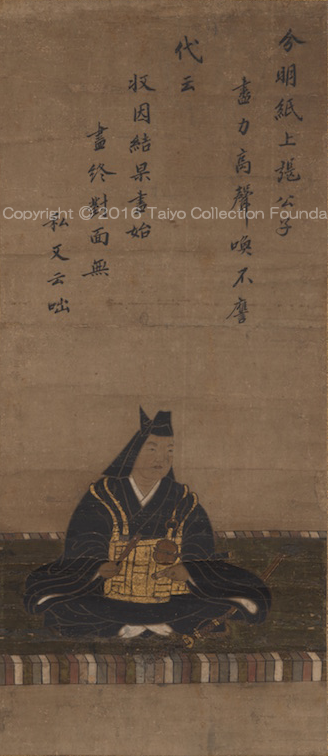 分明紙上張公子
盡力高聲喚不譍
代云
収因結果盡始
盡終對面無
私又云咄
Copyright © 2016 Taiyo Collection Founda